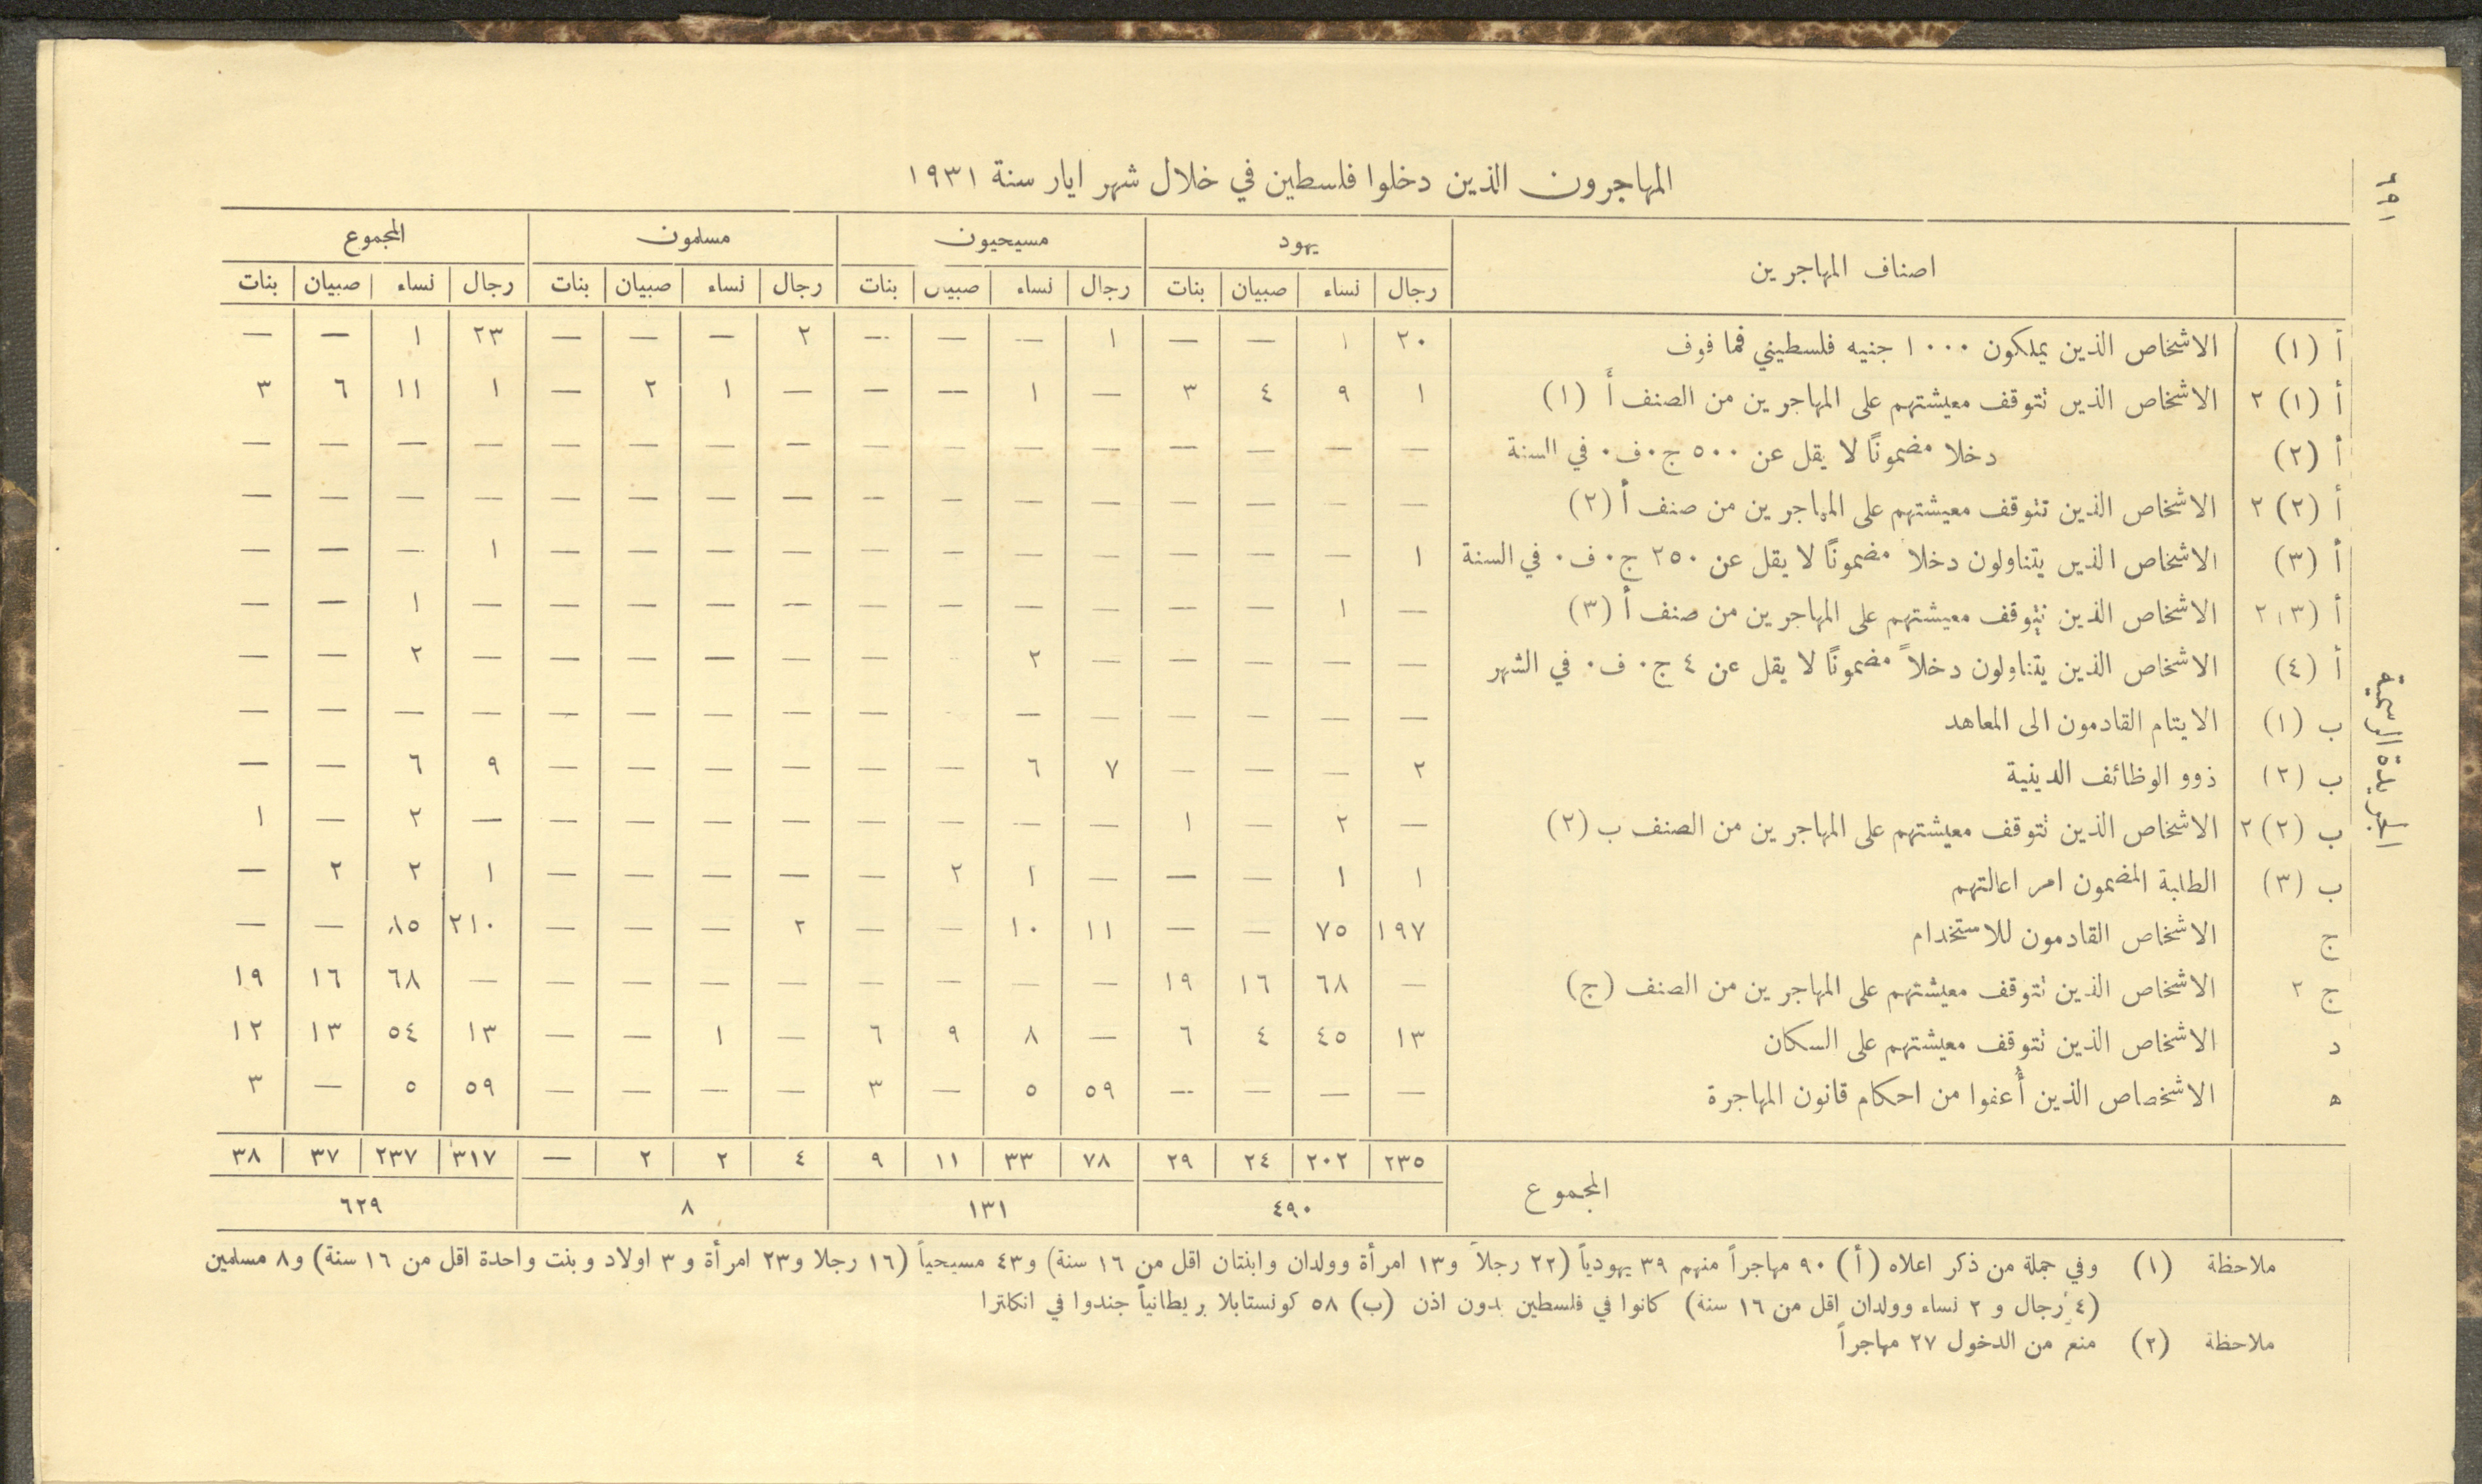 المهاجرون الذين دخلوا فلسطين في خلال شهر ايار سنة ١٩٣١
٦٩١
الجريدة الرسمية
اصناف المهاجرين | يهود | مسيحيون | مسلمون | المجموع
رجال | نساء | صبيان | بنات | رجال | نساء | صبيان | بنات | رجال | نساء | صبيان | بنات | رجال | نساء | صبيان | بنات
أ (١) | الاشخاص الذين يملكون ١٠٠٠ جنيه فلسطيني فما فوف | ٢٠ | ١ | — | — | ١ | — | — | — | ٢ | — | — | — | ٢٣ | ١ | — | —
أ (١) ٢ | الاشخاص الذين تتوقف معيشتهم على المهاجرين من الصنف أ (١) | ١ | ٩ | ٤ | ٣ | — | ١ | — | — | — | ١ | ٢ | — | ١ | ١١ | ٦ | ٣
أ (٢) | دخلا مضمونًا لا يقل عن ٥٠٠ ج٠ف٠ في السنة | — | — | — | — | — | — | — | — | — | — | — | — | — | — | — | —
أ (٢) ٢ | الاشخاص الذين تتوقف معيشتهم على المهاجرين من صنف أ (٢) | — | — | — | — | — | — | — | — | — | — | — | — | — | — | — | —
أ (٣) | الاشخاص الذين يتناولون دخلا مضمونًا لا يقل عن ٢٥٠ ج٠ ف٠ في السنة | ١ | — | — | — | — | — | — | — | — | — | — | — | ١ | — | — | —
أ (٣) ٢ | الاشخاص الذين تتوقف معيشتهم على المهاجرين من صنف أ (٣) | — | ١ | — | — | — | — | — | — | — | — | — | — | — | ١ | — | —
أ (٤) | الاشخاص الذين يتناولون دخلاً مضمونًا لا يقل عن ٤ ج٠ ف٠ في الشهر | — | — | — | — | — | ٢ | — | — | — | — | — | — | — | ٢ | — | —
ب (١) | الايتام القادمون الى المعاهد | — | — | — | — | — | — | — | — | — | — | — | — | — | — | — | —
ب (٢) | ذوو الوظائف الدينية | ٢ | — | — | — | ٧ | ٦ | — | — | — | — | — | — | ٩ | ٦ | — | —
ب (٢) ٢ | الاشخاص الذين تتوقف معيشتهم على المهاجرين من الصنف ب (٢) | — | ٢ | — | ١ | — | — | — | — | — | — | — | — | — | ٢ | — | ١
ب (٣) | الطلبة المضمون امر اعالتهم | ١ | ١ | — | — | — | ١ | ٢ | — | — | — | — | — | ١ | ٢ | ٢ | —
ج | الاشخاص القادمون للاستخدام | ١٩٧ | ٧٥ | — | — | ١١ | ١٠ | — | — | ٢ | — | — | — | ٢١٠ | ٨٥ | — | —
ج ٢ | الاشخاص الذين تتوقف معيشتهم على المهاجرين من الصنف (ج) | — | ٦٨ | ١٦ | ١٩ | — | — | — | — | — | — | — | — | — | ٦٨ | ١٦ | ١٩
د | الاشخاص الذين تتوقف معيشتهم على السكان | ١٣ | ٤٥ | ٤ | ٦ | — | ٨ | ٩ | ٦ | — | ١ | — | — | ١٣ | ٥٤ | ١٣ | ١٢
ه | الاشخصاص الذين أُعفوا من احكام قانون المهاجرة | — | — | — | — | ٥٩ | ٥ | — | ٣ | — | — | — | — | ٥٩ | ٥ | — | ٣
المجموع | ٢٣٥ | ٢٠٢ | ٢٤ | ٢٩ | ٧٨ | ٣٣ | ١١ | ٩ | ٤ | ٢ | ٢ | — | ٣١٧ | ٢٣٧ | ٣٧ | ٣٨
٤٩٠ | ١٣١ | ٨ | ٦٢٩
ملاحظة (١) وفي جملة من ذكر اعلاه (أ) ٩٠ مهاجراً منهم ٣٩ يهودياً (٢٢ رجلاً و١٣ امرأة وولدان وابنتان اقل من ١٦ سنة) و٤٣ مسيحياً (١٦ رجلا و٢٣ امرأة و٣ اولاد وبنت واحدة اقل من ١٦ سنة) و٨ مسلمين
(٤ رجال و ٢ نساء وولدان اقل من ١٦ سنة) كانوا في فلسطين بدون اذن (ب) ٥٨ كونستابلا بريطانياً جندوا في انكلترا
ملاحظة (٢) منع من الدخول ٢٧ مهاجراً